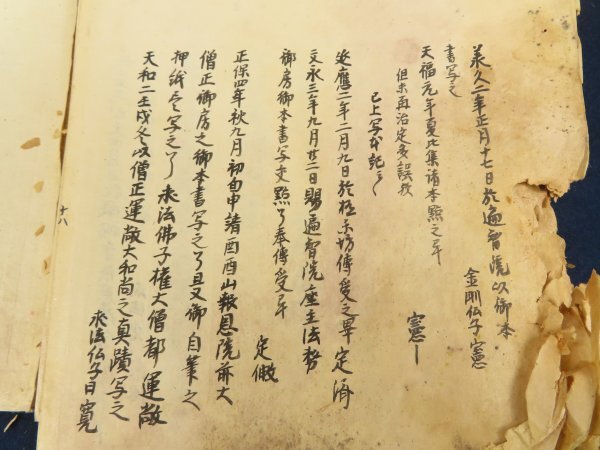 承久二年正月十七日於遍智院以御本
書写之
金剛仏子憲
天福元年夏比集諸本點之畢
但未再治定多誤歟
憲ー
已上写本記之
延應二年二月九日於極樂坊傳受之畢 定濟
文永三年九月廿二日賜遍智院座主法務
御房御本書写交點了奉傳受畢
定
正保四年秋九月初旬申請酉酉山報恩院前大
僧正御房之御本書写之了且又御自筆之
押紙写之了 求法佛子權大僧都 運敞
天和二壬戌冬以僧正運敞大和尚之真蹟写之
求法仏子日寛
十八